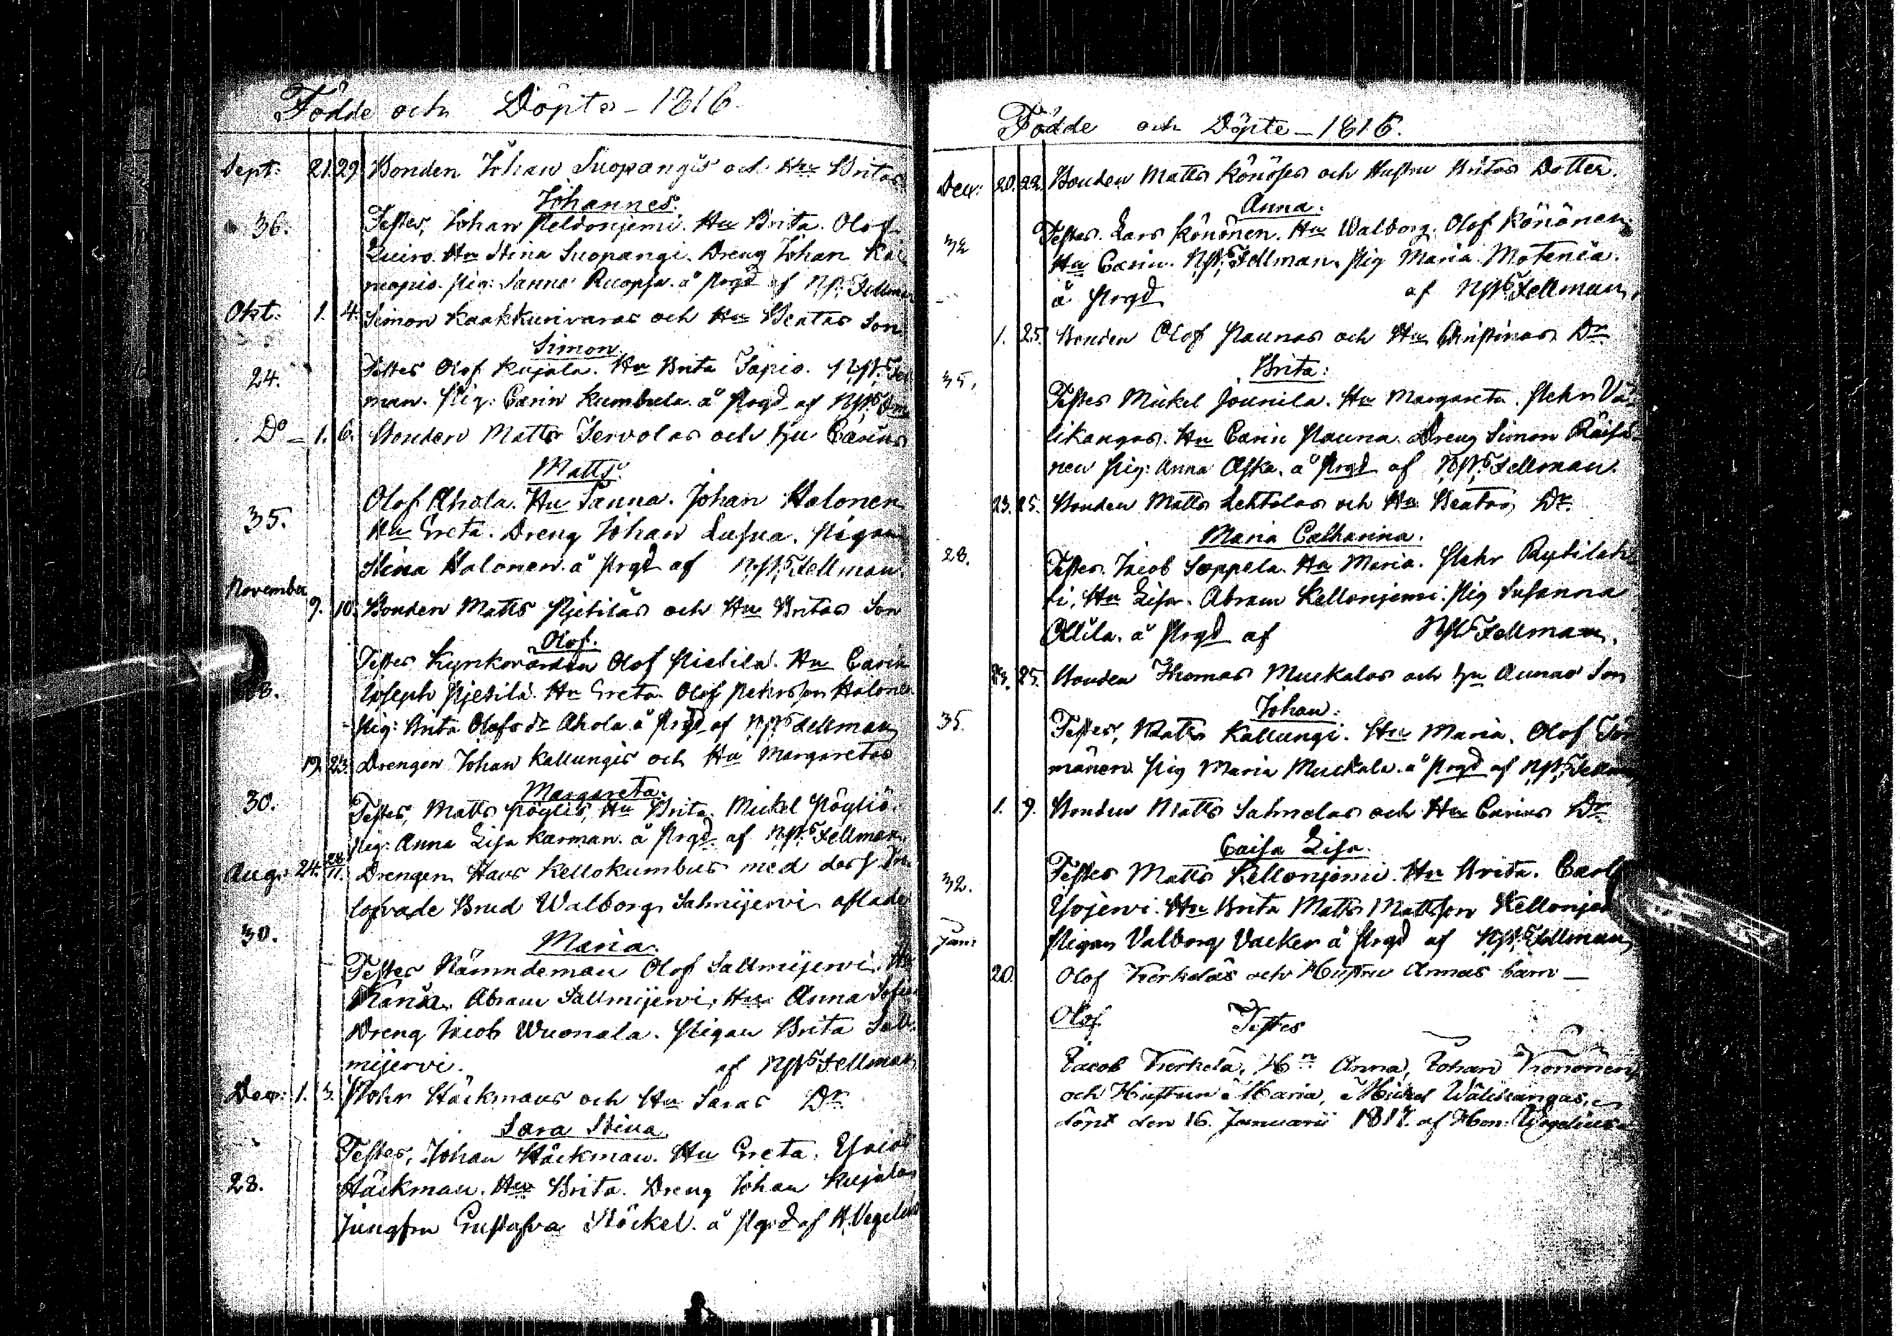 Födde och Döpte – 1816.
Sept: 21. 29. Bonden Johan Suopangis och Hu Britas
Johannes.
36. Testes, Johan Peldonjemi. Hu Brita. Olof
Hu Stina Suopangi. Dreng Johan
Pig: Sanna å Prgd af NPS Fellman
Okt: 1. 4. Simon Kaakkurivaras och Hu Beatas Son
Simon.
24. Testes Olof Kujala. Hu Brita Tapio.
man. Pig: Carin Kumbula å Prgd af NPS
Do – 1. 6. Bonden Matts Tervolas och Hu Carins
Matts.
Olof Ahola. Hu Sanna. Johan Halonen
35. Hu Greta. Dreng Johan Lusua. Pigan
Stina Halonen å Prgd af NPS Fellman.
November 9. 10. Bonden Matts Pietiläs och Hu Britas Son
Olof.
Testes Kyrkovärden Olof Pietilä. Hu Carin
28. Joseph Pietilä. Hu Greta. Olof Pehrsson Halonen
Pig: Brita Olofsdr Ahola å Prgd af NPS Fellman
19. 23. Drengen Johan Kallungis och Hu Margaretas
Margareta.
30. Testes, Matts Pöyliö, Hu Brita. Mickel Pöyliö.
Pig: Anna Lisa Karman. å Prgd af NPS Fellman
Aug: 24. 11. Drengen Hans Kellokumbus med dess
lofvade Brud Walborg Salmijervi aflade
30. Maria.
Testes Nämndeman Olof Sallmijervi. Hu
Maria. Abram Sallmijervi, Hu Anna Sofia
Dreng Jacob Wuonala. Pigan Brita
mijervi. af NPS Fellman
Dec: 1. 3. Pehr Häckmans och Hu Saras Dr
Sara Stina
Testes, Johan Häckman. Hu Greta.
28. Häckman. Hu Brita. Dreng Johan Kujalas
Jungfru Gustafva Stöckel. å Prgd af H. Vegelius
Födde och Döpte – 1816.
Dec: 20. 22. Bonden Matts Könösis och Hustru Britas Dotter.
Anna.
32 Testes. Lars Könönen. Hu Walborg. Olof Könönen
Hu Carin. NPS Fellman. Pig Maria
å Prgd af NPS Fellman
1. 25. Bonden Olof Paunas och Hu Christinas Dr
Brita:
35. Testes Mickel Jounila. Hu Margareta. Pehr Vä-
likangas. Hu Carin Pauna. Dreng Simon Räisä-
nen Pig: Anna Aska. å Prgd af NPS Fellman.
23. 25. Bonden Matts Lehtolas och Hu Beatas Dr.
Maria Catharina.
28. Testes. Jacob Seppelä. Hu Maria. Pehr Rytilah-
ti, Hu Lisa. Abram Kellonjemi. Pig Susanna
Ollila. å Prgd af NPS Fellman.
25. Bonden Thomas Muskalas och Hu Annas Son
Johan:
35. Testes, Matts Kallungi. Hu Maria. Olof Tor-
mänen Pig Maria Muskala. å Prgd af NPS Fellman
1. 9. Bonden Matts Salmelas och Hu Carins Dr
Caisa Lisa.
32. Testes Matts Kellonjemi. Hu Brita. Carl
Ysojervi. Hu Brita Matts Mattsson Kellonjemi
Pigan Valborg Vacker å Prgd af NPS Fellman
Jan:
20. Olof Kerkeläs och Hustru Annas barn –
Olof Testes
Jacob Kerkelä, Hu Anna, Johan Könönen
och Hustrun Maria, Mickel Wälikangas,
döpt den 16. Januarii 1817. af Hon. Vegelius